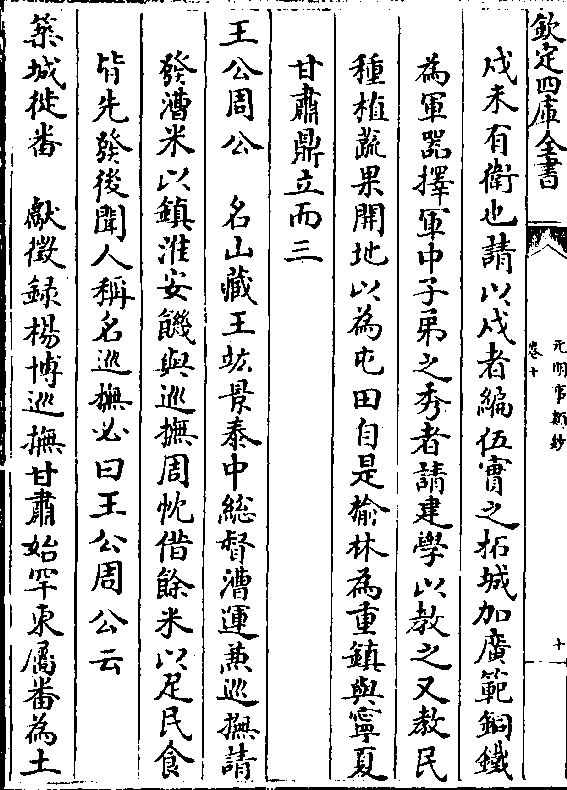 欽定四庫全書
元明事類鈔
卷十
十
戍未有衛也請以戍者編伍實之拓城加廣範銅鐵
為軍器擇軍中子弟之秀者請建學以教之又教民
種植蔬果開地以為屯田自是榆林為重鎮與寧夏
甘肅鼎立而三
王公周公 名山藏王竑景泰中總督漕運兼巡撫請
發漕米以鎮淮安饑與巡撫周忱借餘米以足民食
皆先發後聞人稱名巡撫必曰王公周公云
築城徙番 獻徵録楊博巡撫甘肅始罕東屬番為土